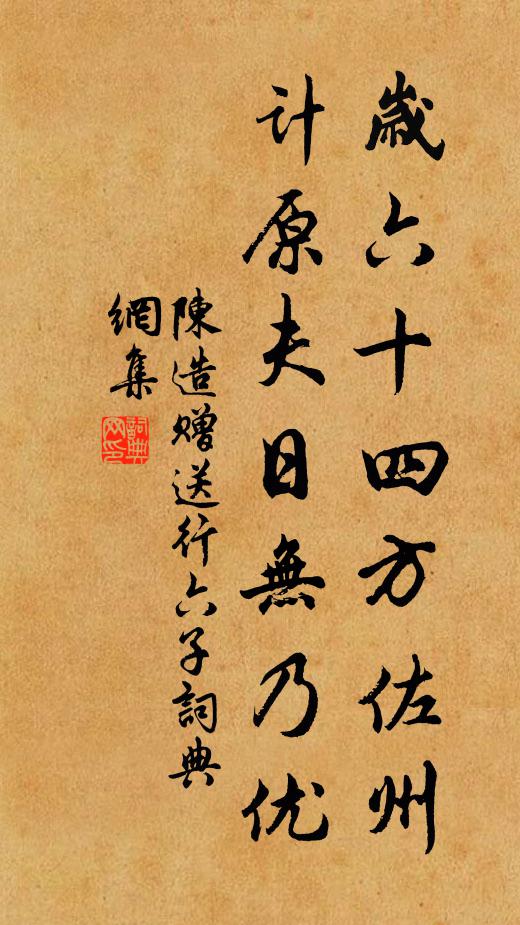 歲六十四方佐州
计原夫日無乃优
陳造赠送行六子詞典
網集
詞典
网印